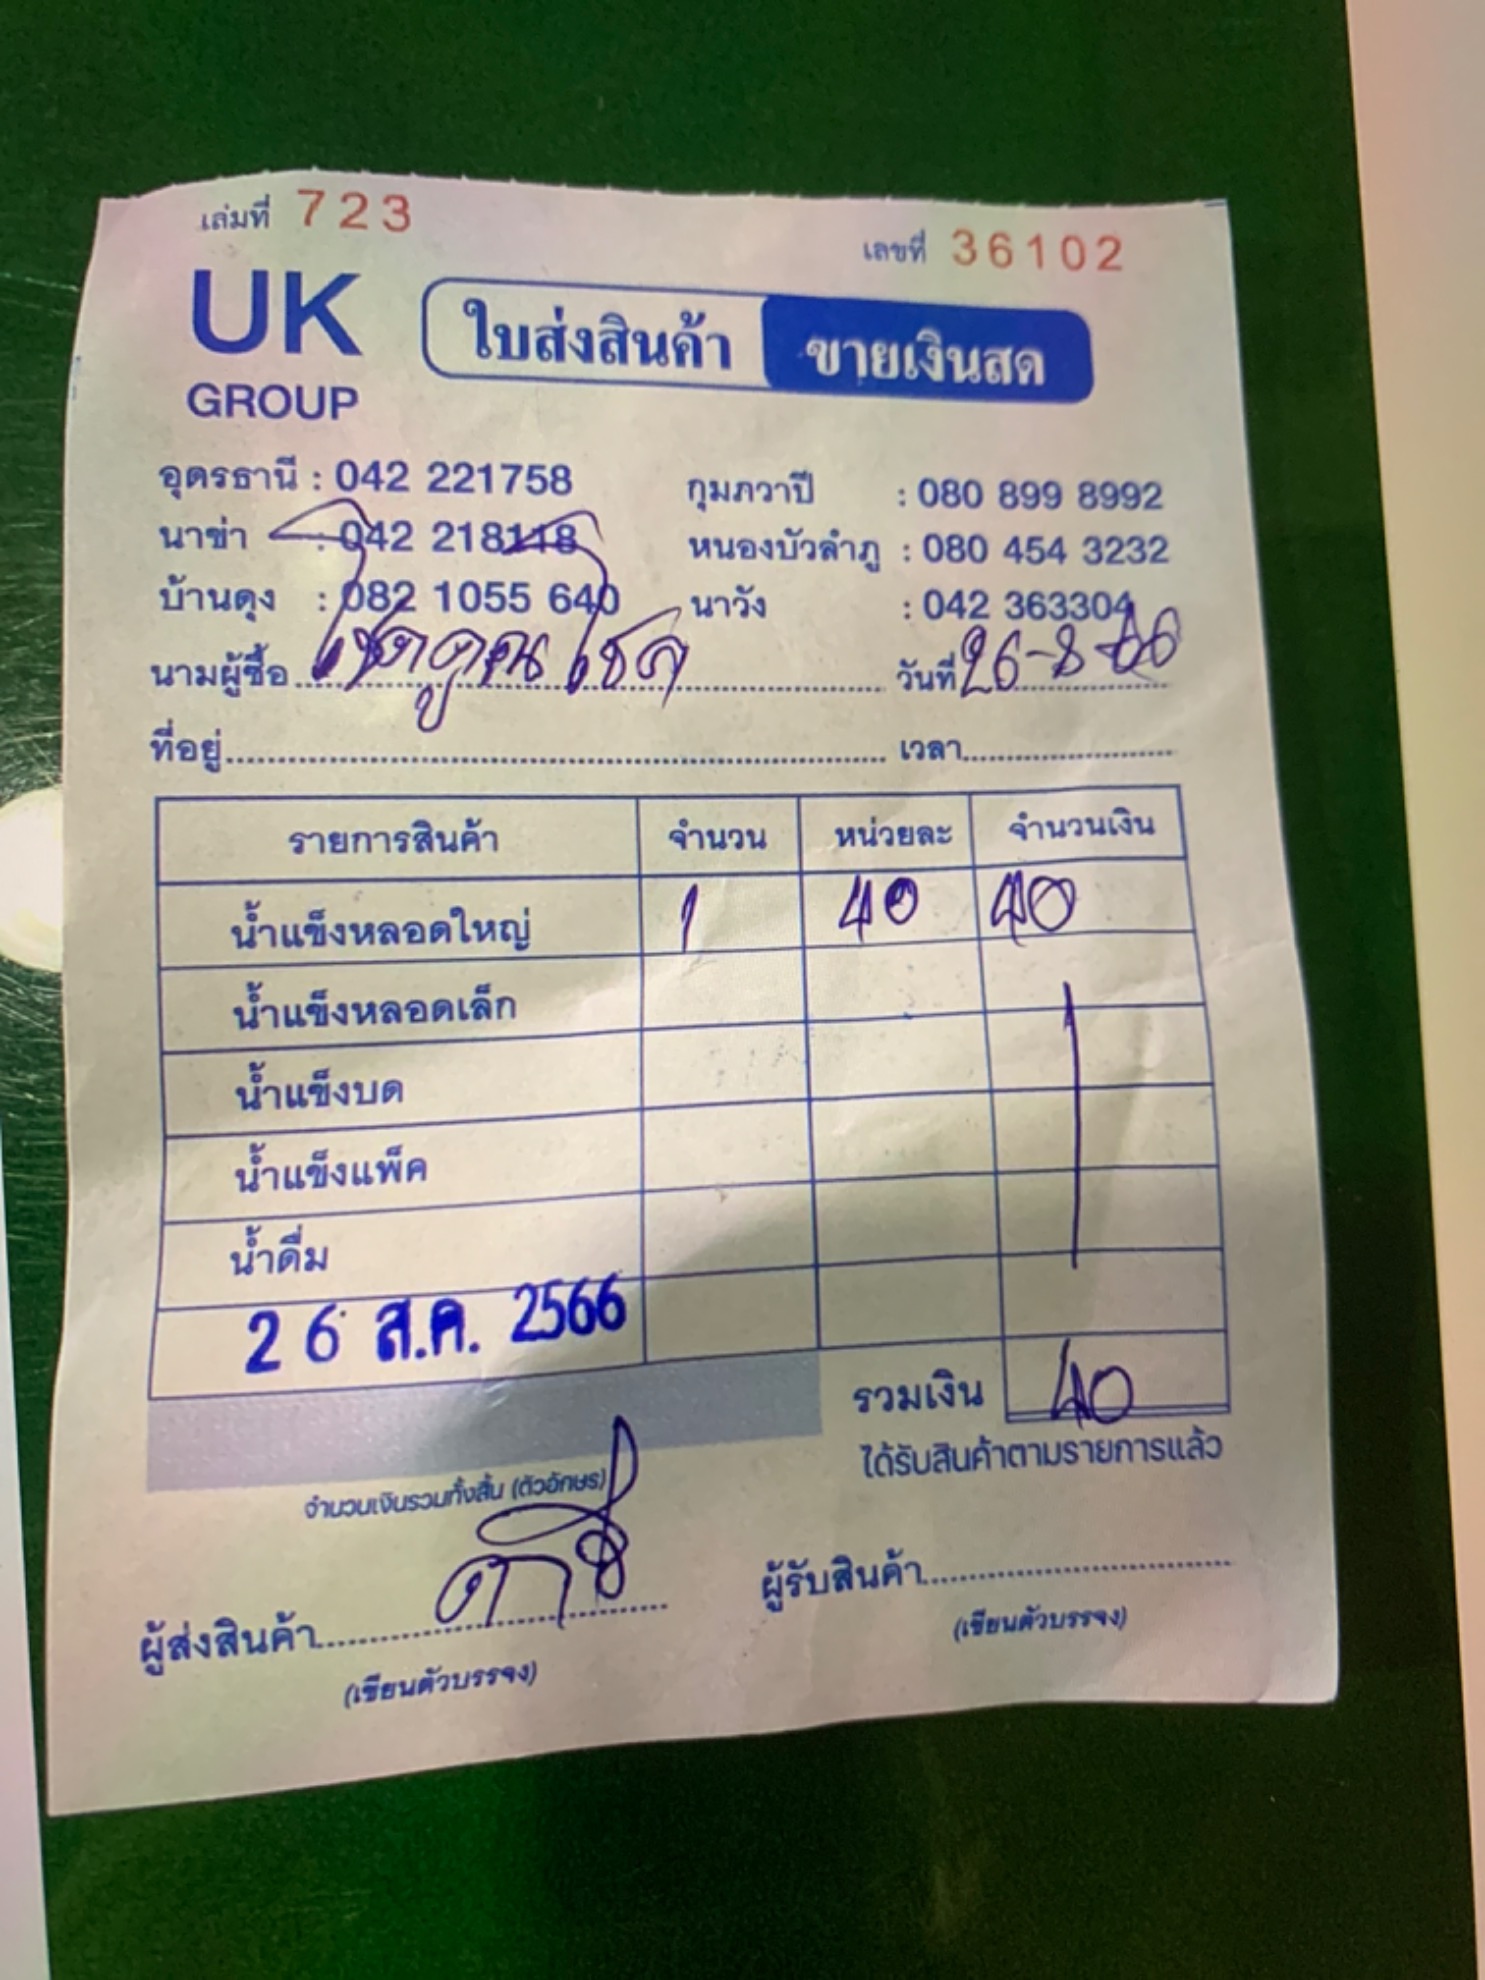 เล่มที่ 723 เลขที่ 36102
UK GROUP ใบส่งสินค้า ขายเงินสด
อุดรธานี : 042 221758 กุมภวาปี : 080 899 8992
นาข่า : 042 218118 หนองบัวลำภู : 080 454 3232
บ้านดุง : 082 1055 640 นาวัง : 042 363304
นามผู้ซื้อ โชคคูณโชค วันที่ 26-8-66
ที่อยู่ เวลา
รายการสินค้า จำนวน หน่วยละ จำนวนเงิน
น้ำแข็งหลอดใหญ่ 1 40 40
น้ำแข็งหลอดเล็ก
น้ำแข็งบด
น้ำแข็งแพ็ค
น้ำดื่ม
26 ส.ค. 2566
รวมเงิน 40
จำนวนเงินรวมทั้งสิ้น (ตัวอักษร) ได้รับสินค้าตามรายการแล้ว
ผู้ส่งสินค้า ผู้รับสินค้า
(เขียนตัวบรรจง) (เขียนตัวบรรจง)